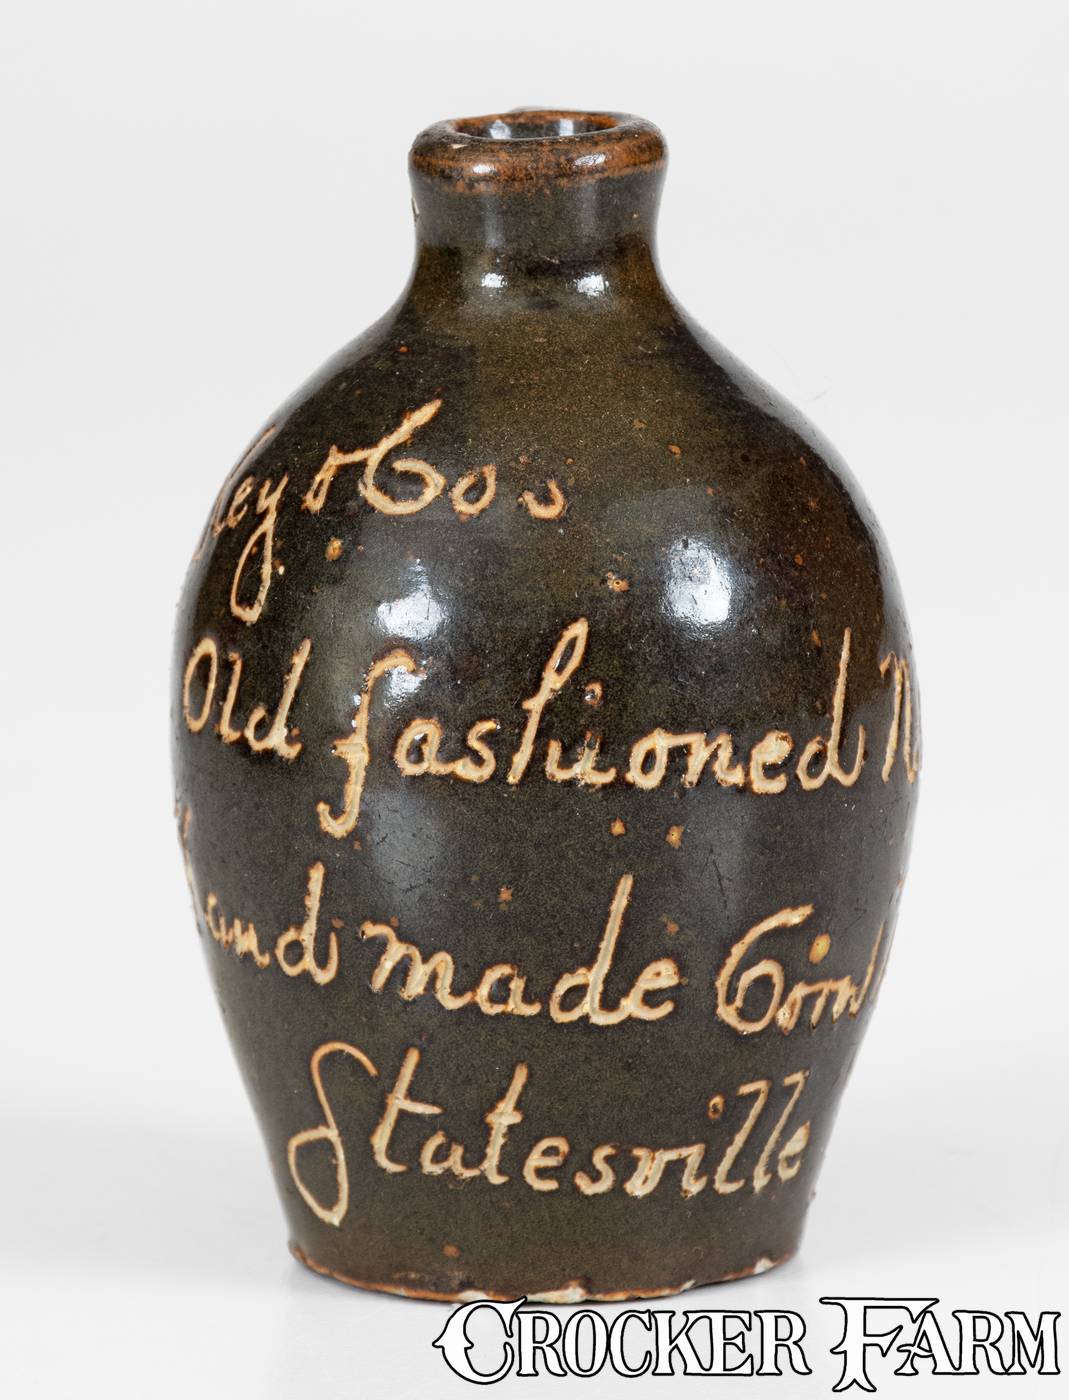 & Cos
Old fashioned
hand made Corn
Statesville
CROCKER FARM